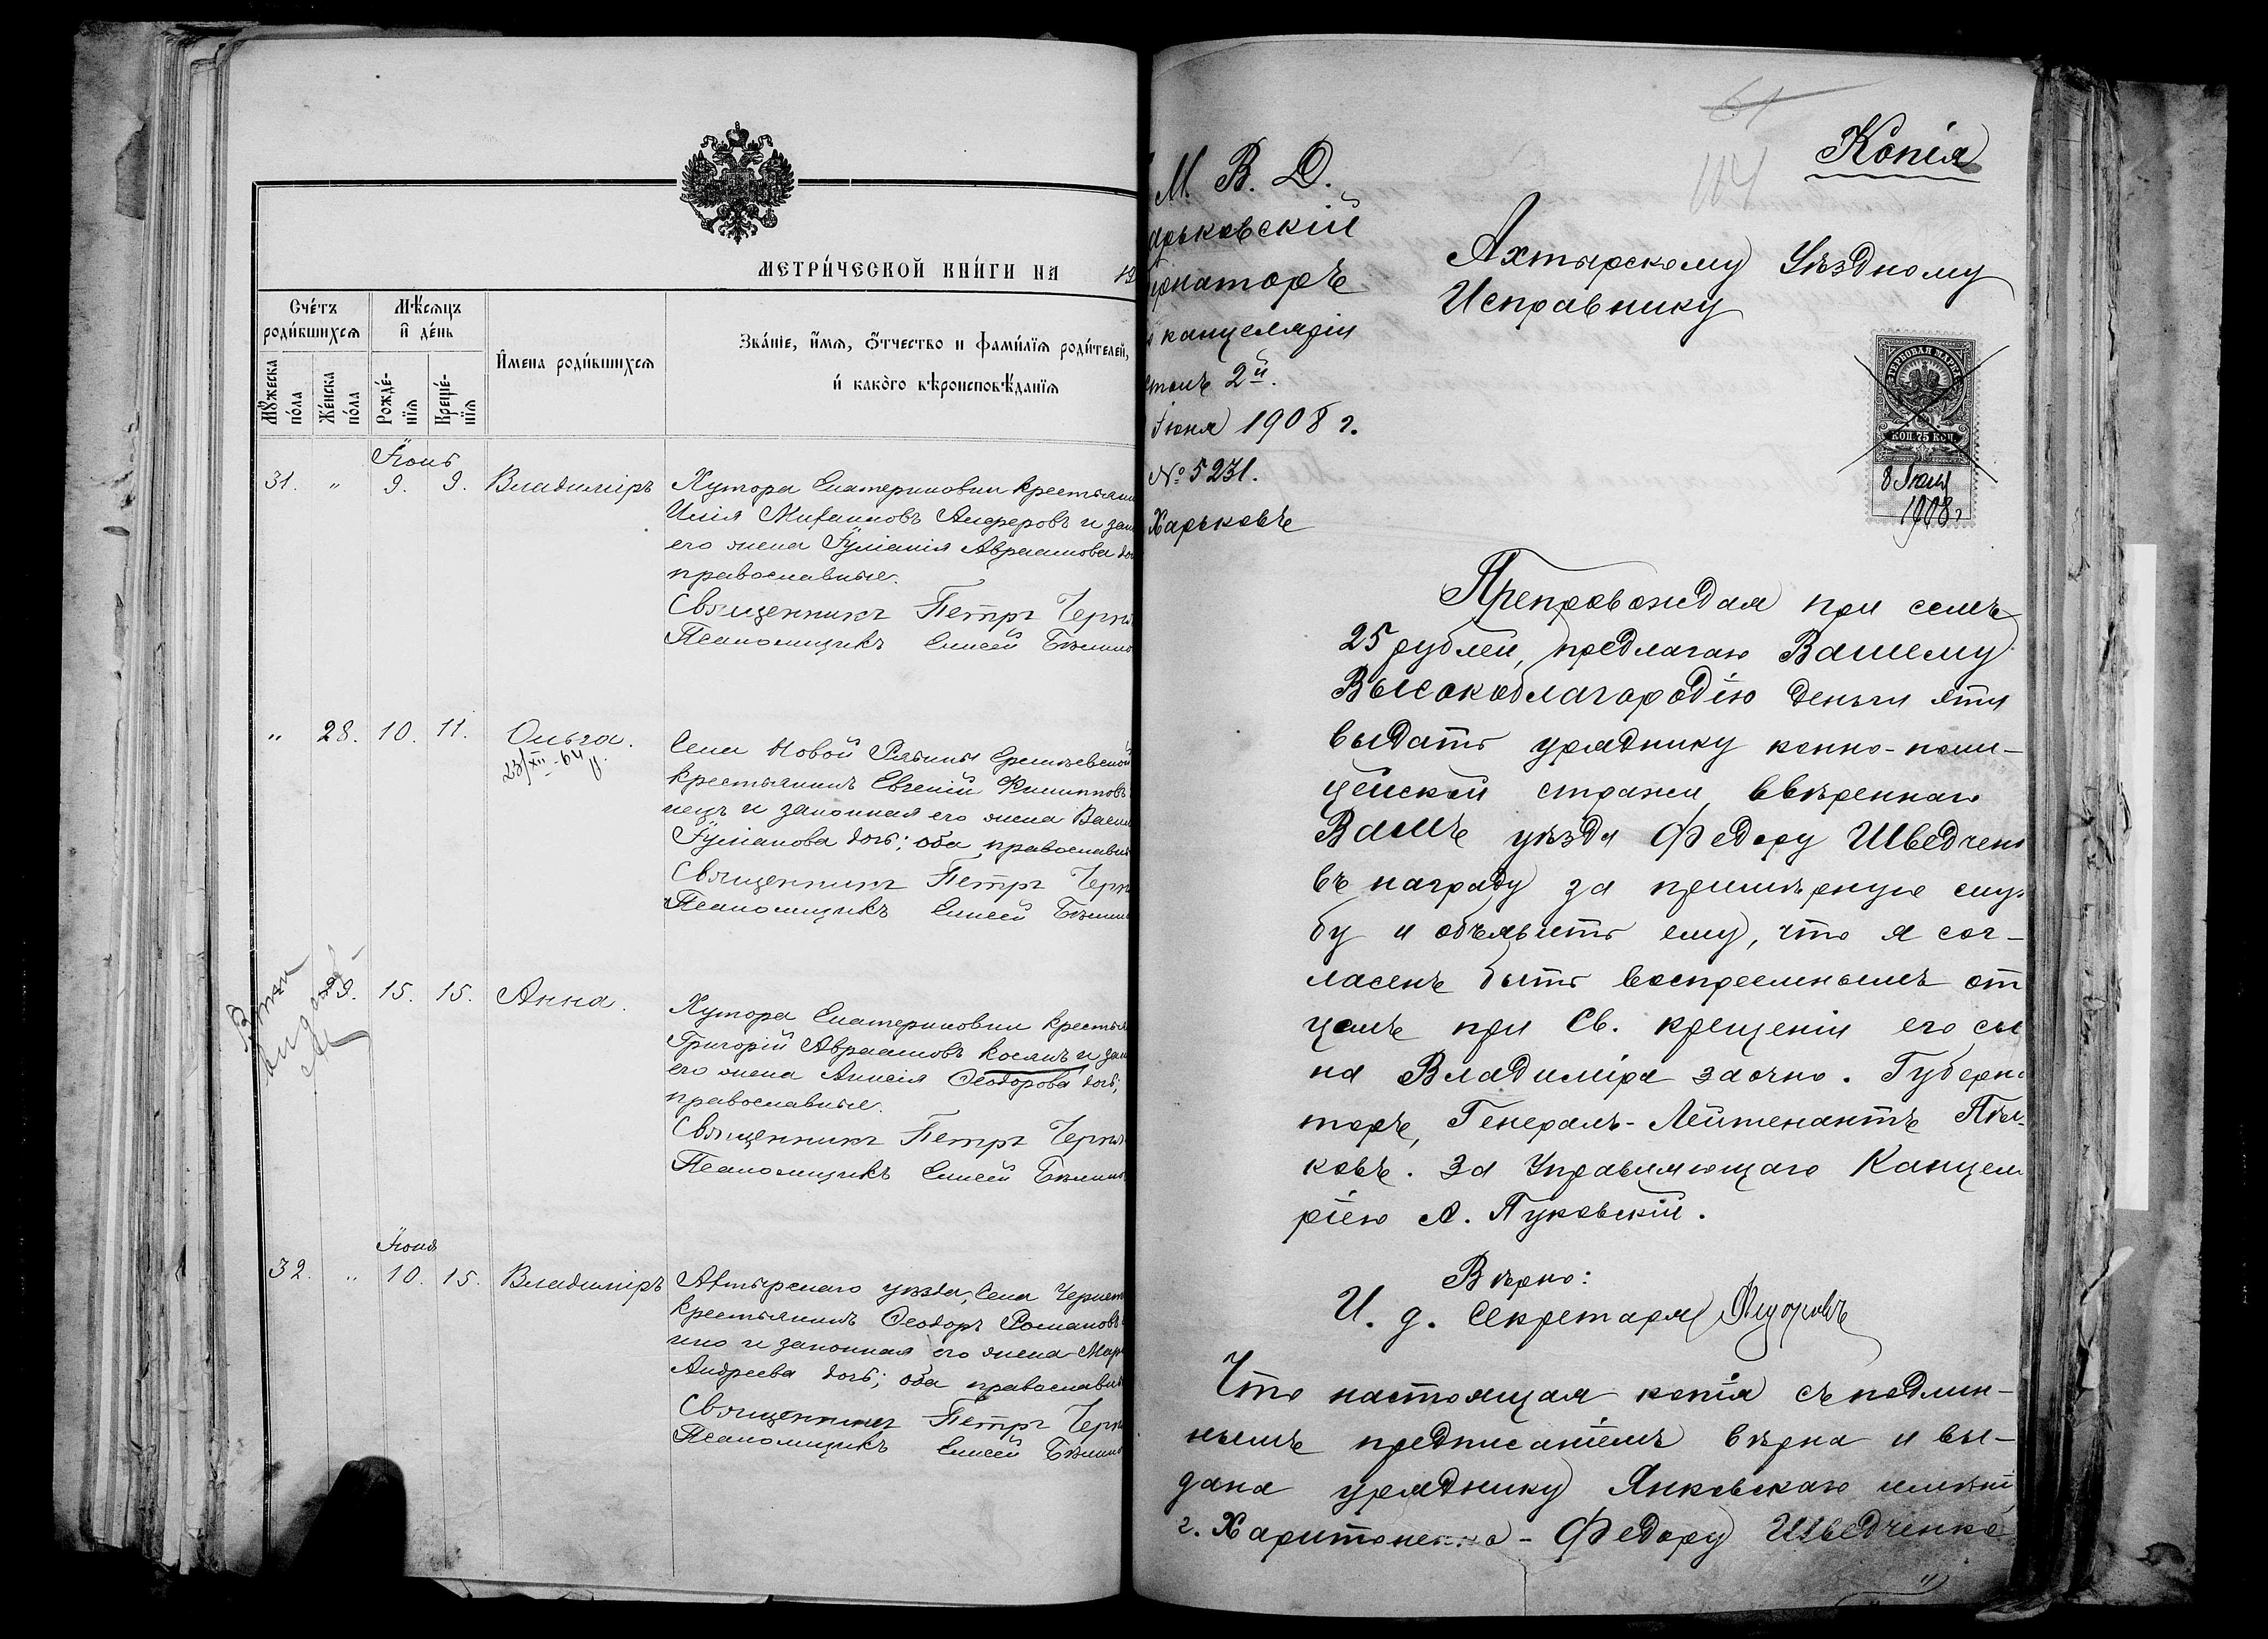 МЕТРИ́ЧЕСКОЙ КНИ́ГИ НА 19
Сче́тъ родившихся
Мѣ́сяцъ и де́нь
Мꙋжеска по́ла
Же́нска по́ла
Рожде́-нїя
Креще́-нїя
И҆мена роди́вшихся
Зва́нїе, и҆́мя, ѻ҆́тчество и фами́лїя роди́телей,
и҆ како́го вѣроисповѣ́данїя
Іюнь
31. " 9. 9. Владиміръ
Хутора Екатериновки крестьяни
Илія Михаиловъ Алферовъ и зак
его жена Іуліанія Авраамова до
православные.
Священникъ Петръ Черн
Псаломщикъ Елисей
" 28. 10. 11. Ольга.
23/XII-64
Села Новой Рябины
крестьянинъ Евгеній Филипповъ
нецъ и законная его жена Васил
Іуліанова дочь; оба православн
Священникъ Петръ Черн
Псаломщикъ Елисей
29. 15. 15. Анна.
Хутора Екатериновки кресть
Григорій Авраамовъ и зак
его жена Ѳеодорова дочь;
православные.
Священникъ Петръ Черн
Псаломщикъ Елисей
Іюня
32. " 10. 15. Владиміръ
Ахтырскаго уѣзда, села Чернет
крестьянинъ Ѳеодоръ Романовъ
нко и законная его жена Мар
Андреева дочь; оба православн
Священникъ Петръ Черн
Псаломщикъ Елисей
61
104
Копія
М. В. Д.
арьковскій
ернаторъ
канцеляріи
столъ 2й.
Іюня 1908 г.
№ 5231.
Харьковъ
Ахтырскому Уѣздному
Исправнику
ГЕРБОВАЯ МАРКА
КОП. 75 КОП.
8 Іюня
1908 г
Препровождая при семъ
25 рублей, предлагаю Вашему
Высокоблагородію деньги эти
выдать уряднику конно-поли-
цейской стражи ввѣреннаго
Вамъ уѣзда Федору Шведченк
въ награду за примѣрную служ
бу и объявить ему, что я сог-
ласенъ быть воспреемнымъ от
цемъ при Св. крещеніи его сы
на Владиміра заочно. Губерна
торъ, Генералъ-Лейтенантъ Пѣш-
ковъ. За Управляющаго Канцеля
ріею А. Пуковскій.
Вѣрно:
И. д. Секретаря
Что настоящая копія съ подлин-
нымъ предписаніемъ вѣрна и вы-
дана уряднику Янковскаго имѣнія
г. Харитоненко - Федору Шведченко